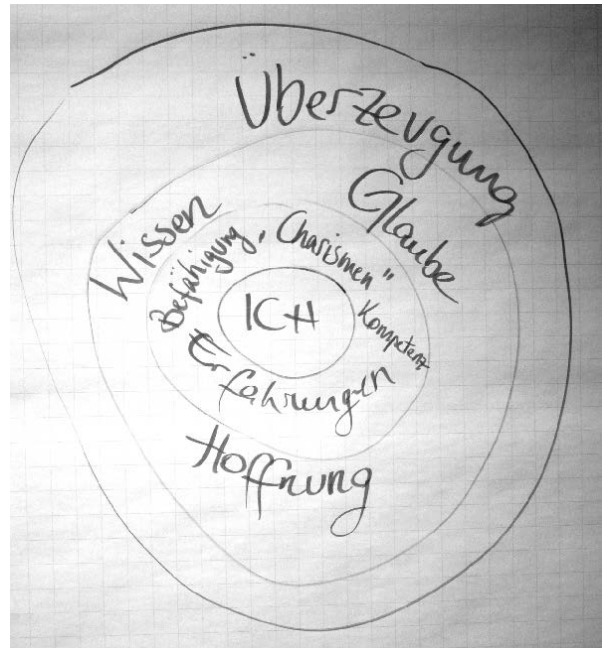 Überzeugung
Glaube
Wissen
Befähigung „Charismen“
Kompetenz
ICH
Erfahrungen
Hoffnung